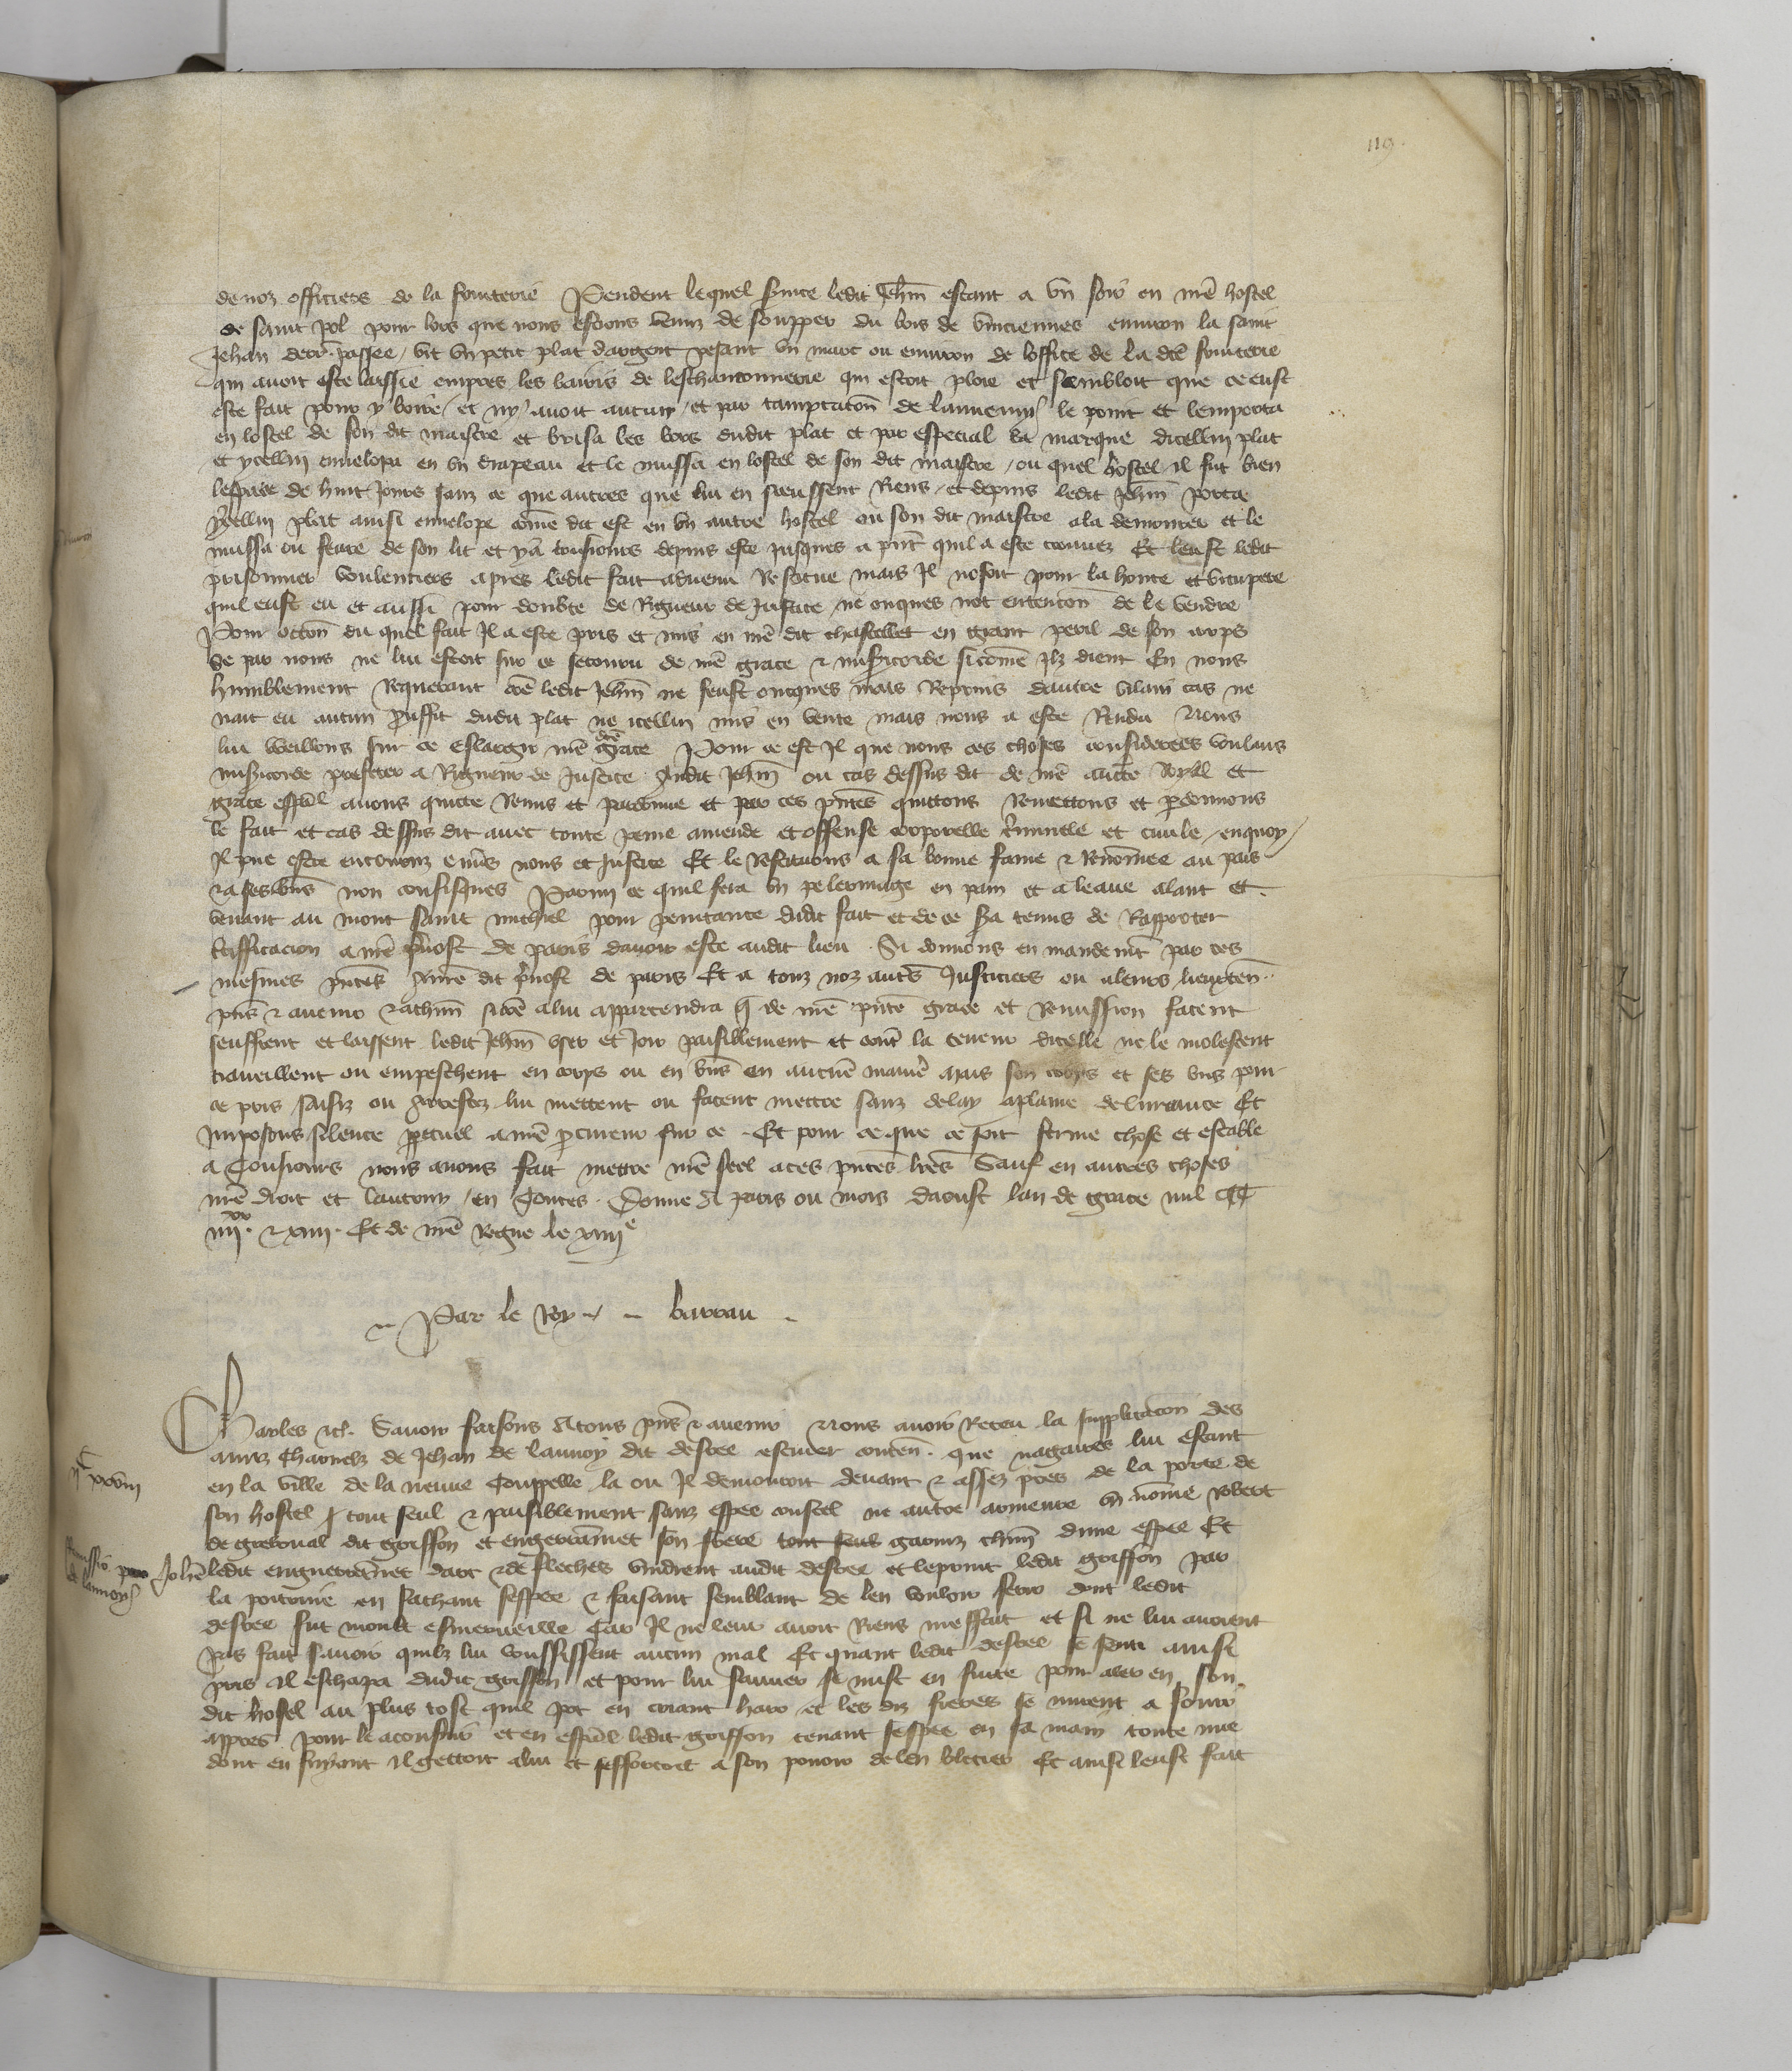 119
de noz officiers de la fruiterie Pendent lequel s'vice ledit Jeh'n estant a un soir en nr'e hostel
de saint Pol pour lors que nous estions venuz de soupper du bois de vinciennes environ la saint
Jehan derr' passee / vit un petit plat dargent pesant un marc ou environ de loffice de la dc'e fruiterie
qui avoit este laissie empres les barris de leschanconnerie qui estoit ploie et sembloit que ce eust
este fait pour y boire / et ny avoit aucun / et par temptacion de lannemy le print et lemporta
en lostel de son dit maistre et brisa les bors dudit plat et par especial la marque dicellui plat
et ycellui envelopa en un drapeau et le mussa en lostel de son dit maistre / ou quel hostel il fut bien
lespace de huit jours sanz ce que autres que lui en sceussent riens / et depuis ledit Jeh'n porta
ycellui plat ainsi envelope co'me dit est en un autre hostel ou son dit maistre ala demourer et le
mussa ou feurre de son lit et y a tousjours depuis este jusques a p'nt quil a este trouvez Et leust ledit
prisonnier voulentiers apres ledit fait advenu restitue mais il nosoit pour la honte et vitupere
quil eust eu et aussi pour doubte de rigueur de justice ne onques not entencion de le vendre
Pour occ'on du quel fait il a este pris et mis en nr'e dit chastellet en grant peril de son corps
se par nous ne lui estoit sur ce secouru de nr'e grace & mis'icorde sico'me ilz dient En nous
humblement requerant co'e ledit Jeh'n ne feust oncques mais reprins dautre vilain cas ne
nait eu aucun prouffit dudit plat ne icellui mis en vente mais nous a este rendu Nous
lui weillons sur ce eslargir nr'e dc'e grace Pour ce est il que nous ces choses considerees voulans
mis'icorde preferer a rigueur de justice Audit Jeh'n ou cas dessus dit de nr'e auct'e royal et
grace esp'al avons quicte remis et pardonne et par ces p'ntes quictons remettons et p'donnons
le fait et cas dessus dit avec toute peine amende et offense corporelle c'iminele et civile / en quoy
il pue estre encouruz env's nous et justice Et le restituons a sa bonne fame & reno'mee au pais
& a ses biens non confisques Parmi ce quil fera un pelerinage en pain et a leaue alant et
venant au mont saint michiel pour penitance dudit fait et de ce s'a tenus de rapporter
certifficacion a nr'e p'vost de paris davoir este audit lieu Si donnons en mandem't par ces
mesmes p'ntes a nr'e dit p'vost de paris Et a touz noz aut's justiciers ou a leurs lieuxten'
p'ns & avenir & a ch'un si co'e a lui appartendra q' de nr'e p'nte grace et remission facent
seuffrent et laissent ledit Jeh'n user et joir paisiblement et cont' la teneur dicelle ne le molestent
travaillent ou empeschent en corps ou en biens en aucune maniere Mais son corps et ses biens pour
ce pris saisiz ou arrestez lui mettent ou facent mettre sanz delay a plaine delivrance Et
imposons silence perpetuel a nr'e p'cureur sur ce Et pour ce que ce soit ferme chose et estable
a tousjours nous avons fait mettre nr'e seel a ces p'ntes l'res Sauf en autres choses
nr'e droit et lautruy / en toutes Donne A paris ou mois daoust lan de grace mil CCC
iiijxx & xiiij Et de nr'e regne le xiiije
Par le Roy barrau
ijC xxviij
Charles etc. Savoir faisons A tous p'ns & avenir Nous avoir receu la supplicacion des
amis charnelz de Jehan de Lannoy dit destree escuier conten' que nagaires lui estant
en la ville de la neuve Couppelle la ou il demouroit devant & assez pres de la porte de
son hostel tout seul & paisiblement sanz espee coustel ne autre armeure un no'me robert
de greboval dit griffon et engerra'met son frere tout seuls garniz ch'un dune espee Et
Remissio pro Joh'e de lannoy
ledit engerra'met darc & de fleches vindrent audit destree et le print ledit griffon par
la poitrine en sachant sespee & faisant semblant de len vouloir ferir dont ledit
destree fut moult esmerveille Car il ne leur avoit riens meffait et si ne lui avoient
pas fait savoir quilz lui voussissent aucun mal Et quant ledit destree se senti ainsi
pris il eschapa dudit griffon et pour lui sauver se mist en fuite pour aler en son
dit hostel au plus tost quil pot en criant haro et les diz freres se mirent a courir
apres pour le aconsuir et en esp'al ledit griffon tenant sespee en sa main toute nue
dont en fuyant il gettoit a lui et sefforcoit a son povoir de len blecier Et ainsi leust fait